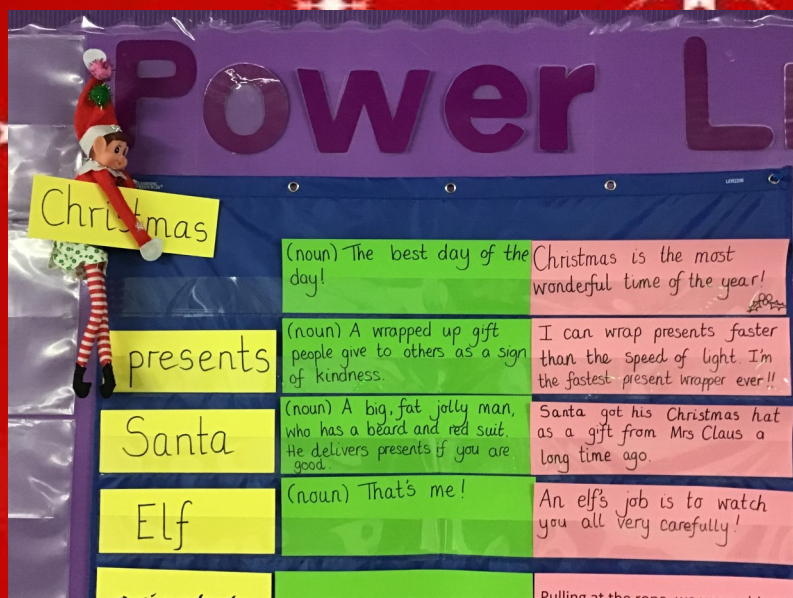 Power Li
Christmas
(noun) The best day of the
day!
Christmas is the most
wonderful time of the year!
presents
(noun) A wrapped up gift
people give to others as a sign
of kindness.
I can wrap presents faster
than the speed of light. I'm
the fastest present wrapper ever!!
Santa
(noun) A big, fat jolly man,
who has a beard and red suit.
He delivers presents if you are
good.
Santa got his Christmas hat
as a gift from Mrs Claus a
long time ago.
Elf
(noun) That's me!
An elf's job is to watch
you all very carefully!
Pulling at the rope